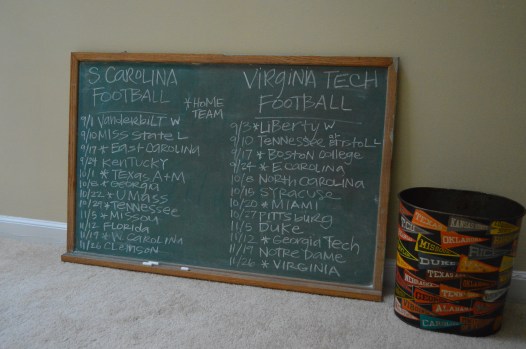 S CAROLINA
FOOTBALL
* HOME
TEAM
9/1 Vanderbilt W
9/10 MISS STATE L
9/17 * EAST CAROLINA
9/24 KENTUCKY
10/1 * TEXAS A+M
10/8 * GEORGIA
10/22 * UMASS
10/29 * TENNESSEE
11/5 * MISSOURI
11/12 FLORIDA
11/19 * W CAROLINA
11/26 CLEMSON
VIRGINIA TECH
FOOTBALL
9/3 * LIBERTY W
9/10 TENNESSEE at BRISTOL L
9/17 * BOSTON COLLEGE
9/24 * E CAROLINA
10/8 NORTH CAROLINA
10/15 SYRACUSE
10/20 * MIAMI
10/27 PITTSBURG
11/5 DUKE
11/12 * GEORGIA TECH
11/19 NOTRE DAME
11/26 * VIRGINIA
TCU
KANSAS
TEXAS
OKLAHOMA
MISSOURI
DUKE
TEXAS
OKLAHOMA
NEBRASKA
TEXAS
CAROLINA